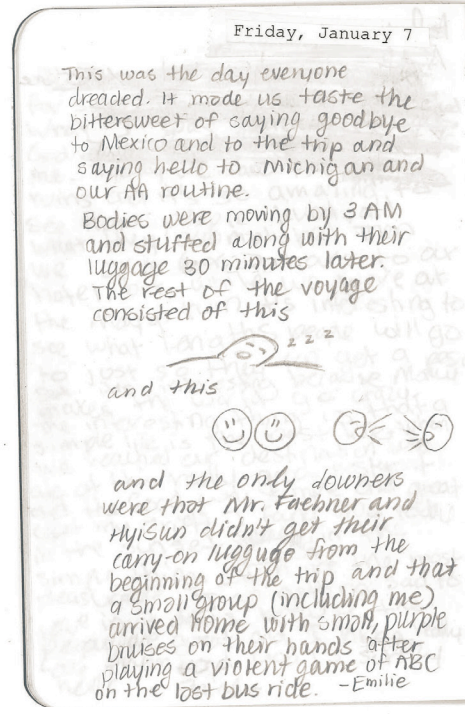 Friday, January 7
This was the day everyone
dreaded. It made us taste the
bittersweet of saying goodbye
to Mexico and to the trip and
saying hello to Michigan and
our AA routine.
Bodies were moving by 3 AM
and stuffed along with their
luggage 30 minutes later.
The rest of the voyage
consisted of this
z z z
and this
and the only downers
were that Mr. Faehner and
HyiSun didn't get their
carry-on luggage from the
beginning of the trip and that
a small group (including me)
arrived home with small, purple
bruises on their hands after
playing a violent game of ABC
on the last bus ride. -Emilie